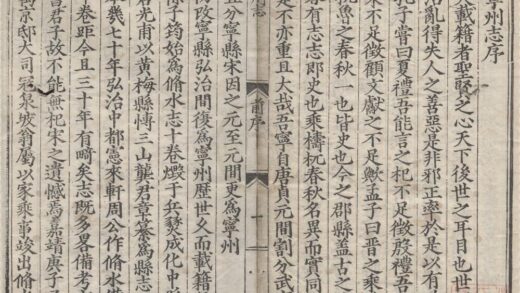 寧州志序
載籍者聖賢之心天下後世之耳目也世
治亂得失人之善惡是非邪正率於是以有
孔子嘗曰夏禮吾能言之杞不足徵殷禮吾
宋不足徵觀文獻之不足歟孟子曰晉之乘
魯之春秋一也皆史也今之郡縣盖古之
有志志即史也乘檮杌春秋名異而實同
是不亦重且大哉吾寧自唐貞元間割分武
首序
一
分寧縣宋因之元至元間更為寧州
改寧縣弘治間復為寧州歷世久而載籍
徐子筠始為脩水志十卷燬于兵燹成化中
君光甫以黃梅縣愽三山龔君章纂為縣志
幾七十年弘治中都憲來軒周公作脩水備
卷距今且三十年有畸矣志既多畧備考
君子故不能無杞宋之遺憾焉嘉靖庚子
京邸大司寇泉坡翁屬以家乘事竣出脩